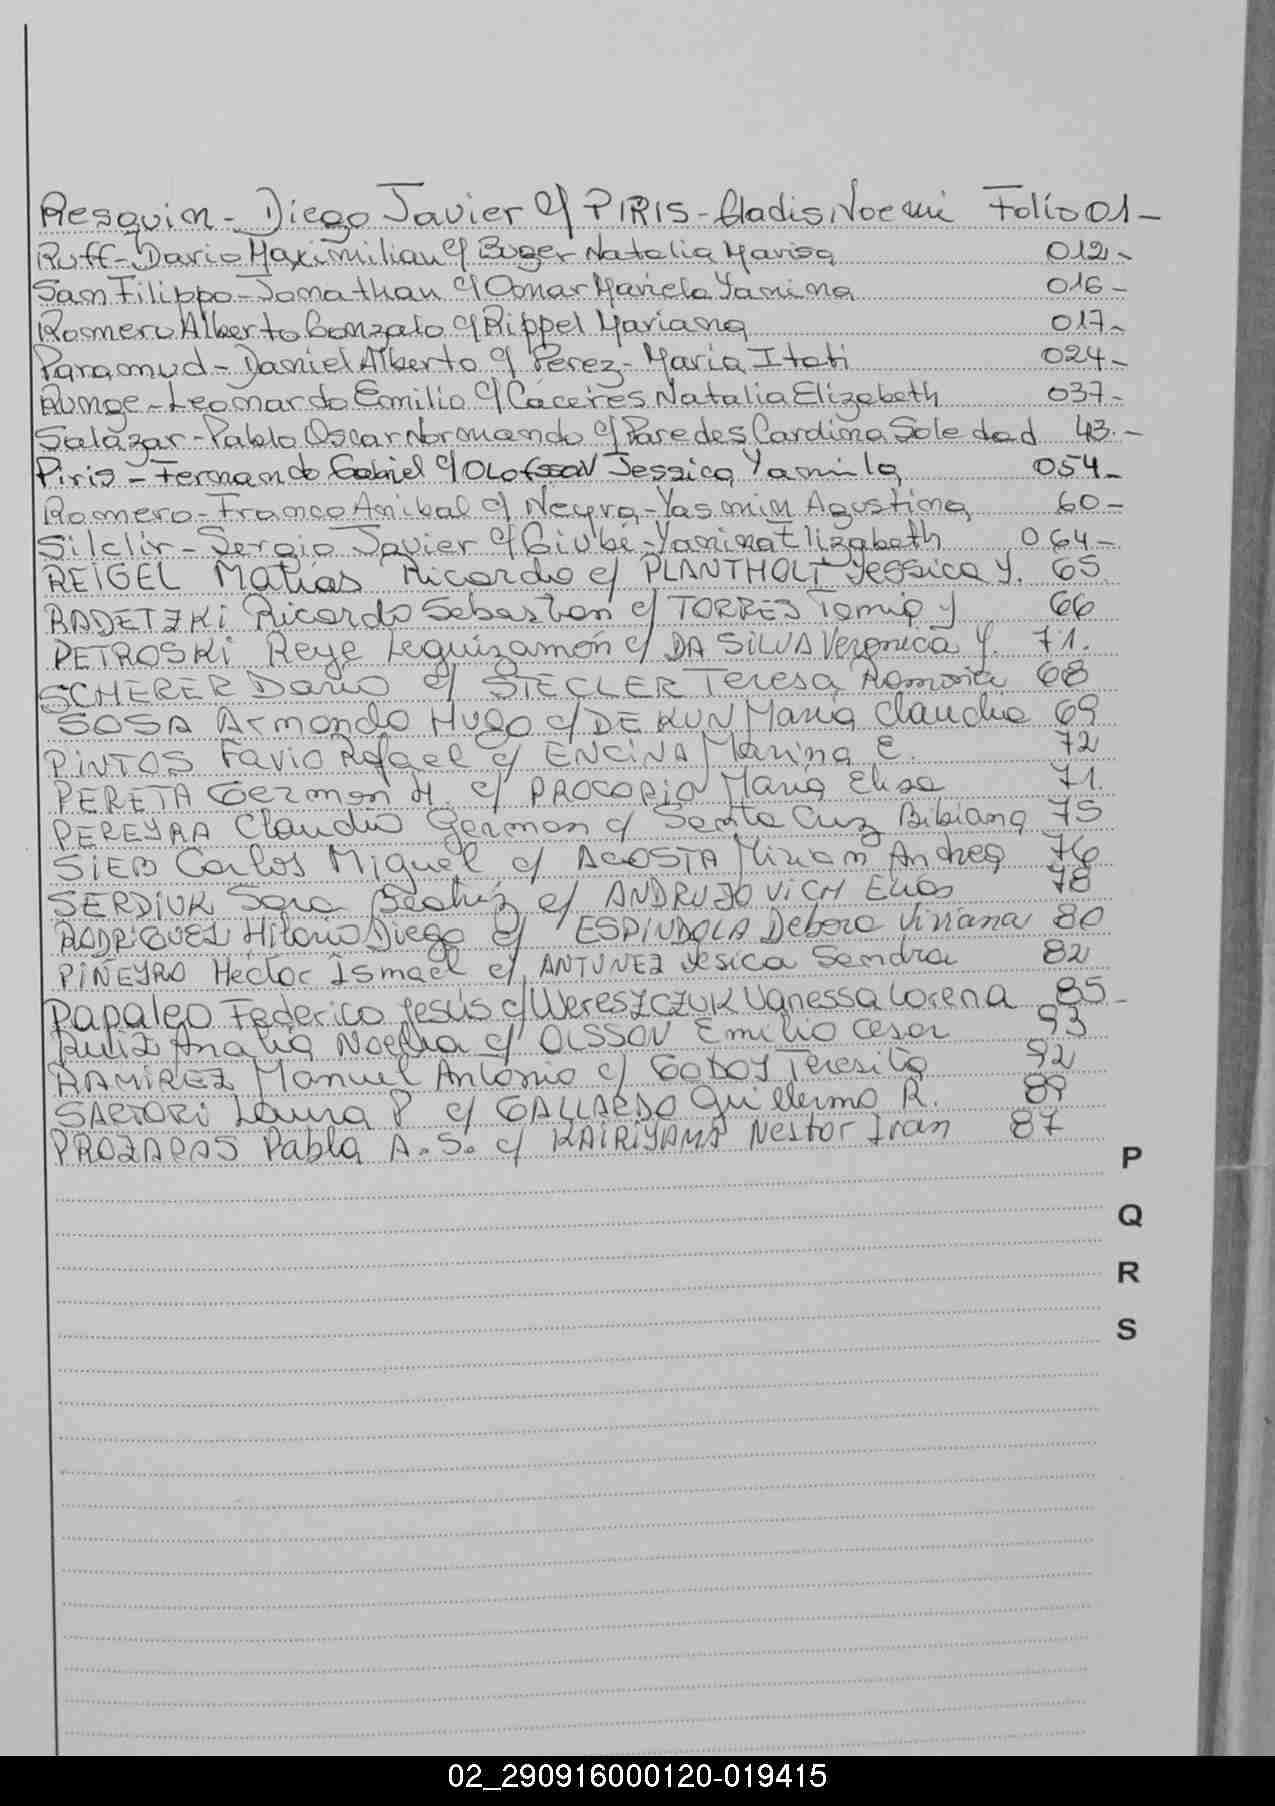 Resquin - Diego Javier c/ PIRIS - Gladis Noemi Folio 01 -
Ruff - Dario Maximilian c/ Buger Natalia Marisa 012 -
San Filippo - Jonathan c/ Omar Mariela Yanina 016 -
Romero Alberto Gonzalo c/ Rippel Mariana 017 -
Paramud - Daniel Alberto c/ Perez - Maria Itati 024 -
Runge - Leonardo Emilio c/ Cáceres Natalia Elizabeth 037 -
Salazar - Pablo Oscar Normando c/ Paredes Cardina Soledad 43 -
Piris - Fernando Gabriel c/ Olofsson Jessica Yamila 054 -
Romero - Franco Anibal c/ Neyra - Yasmin Agustina 60 -
Silclir - Sergio Javier c/ Giubé - Yanina Elizabeth 064 -
REIGEL Matías Ricardo c/ PLANTHOLT Yessica Y. 65
RADETZKI Ricardo Sebastian c/ TORRES Tamia Y 66
PETROSKI Reye Leguizamón c/ DA SILVA Veronica Y. 71.
SCHERER Dario c/ STECLER Teresa Ramona 68
SOSA Armando Hugo c/ DE KUN María Claudia 69
PINTOS Favio Rafael c/ ENCINA Marina E. 72
PERETA German H. c/ PROCOPIO María Elisa 71.
PEREYRA Claudio German c/ Santa Cruz Bibiana 75
SIEB Carlos Miguel c/ ACOSTA Miriam Andrea 76
SERDIUK Sara Beatriz c/ ANDRUJOVICH Elías 78
RODRIGUEZ Hilario Diego c/ ESPINDOLA Debora Viviana 80
PIÑEYRO Héctor Ismael c/ ANTUNEZ Yesica Sandra 82
Papaleo Federico Jesús c/ WERESZCZUK Vanessa Lorena 85 -
RUIZ Analia Noelia c/ OLSSON Emilio Cesar 93
RAMIREZ Manuel Antonio c/ GODOY Teresita 92
SARTORI Laura P c/ GALLARDO Guillermo R. 89
PROZAPAS Pabla A. S. c/ KAIRIYAMA Nestor Ivan 87
P
Q
R
S
02_290916000120-019415